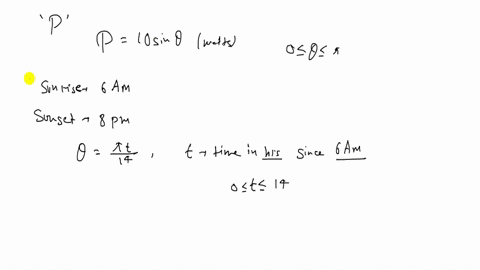 'P'
P = 10 sin θ (watts) 0 ≤ θ ≤ π
Sunrise → 6 AM
Sunset → 8 pm
θ = πt/14 , t → time in hrs since 6 AM
0 ≤ t ≤ 14